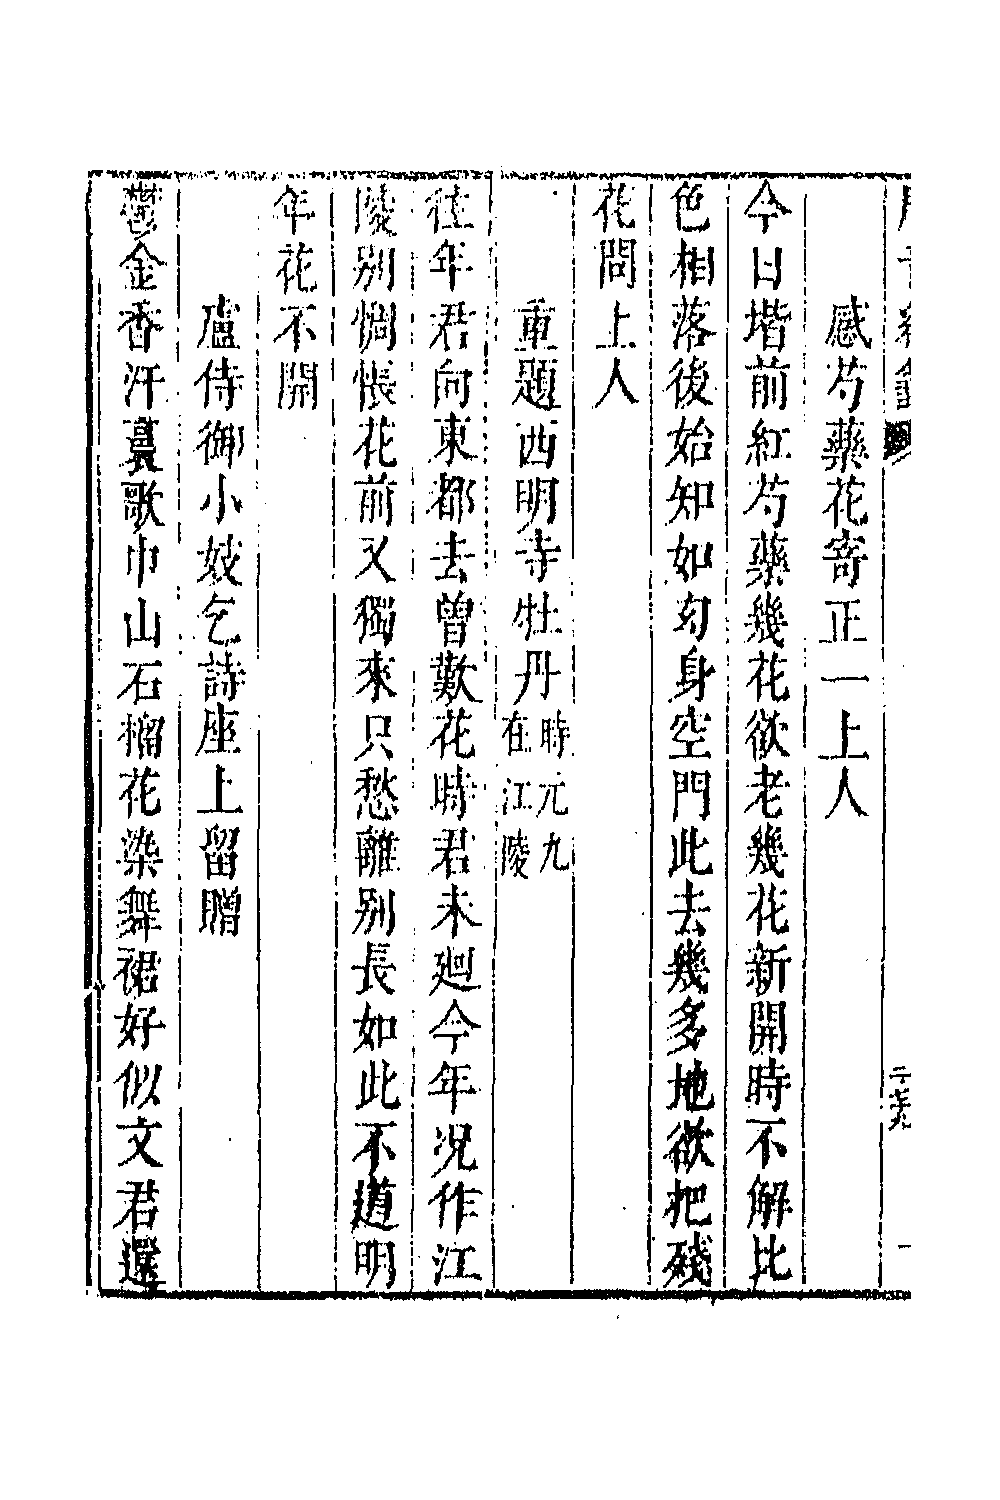 感芍藥花寄正一上人
今日堦前紅芍藥幾花欲老幾花新開時不解比
色相落後始知如幻身空門此去幾多地欲把殘
花問上人
重題西明寺牡丹時元九在江陵
往年君向東都去曾歎花時君未廻今年况作江
陵别惆悵花前又獨來只愁離别長如此不道明
年花不開
盧侍御小妓乞詩座上留贈
鬱金香汗裛歌巾山石榴花染舞裙好似文君還